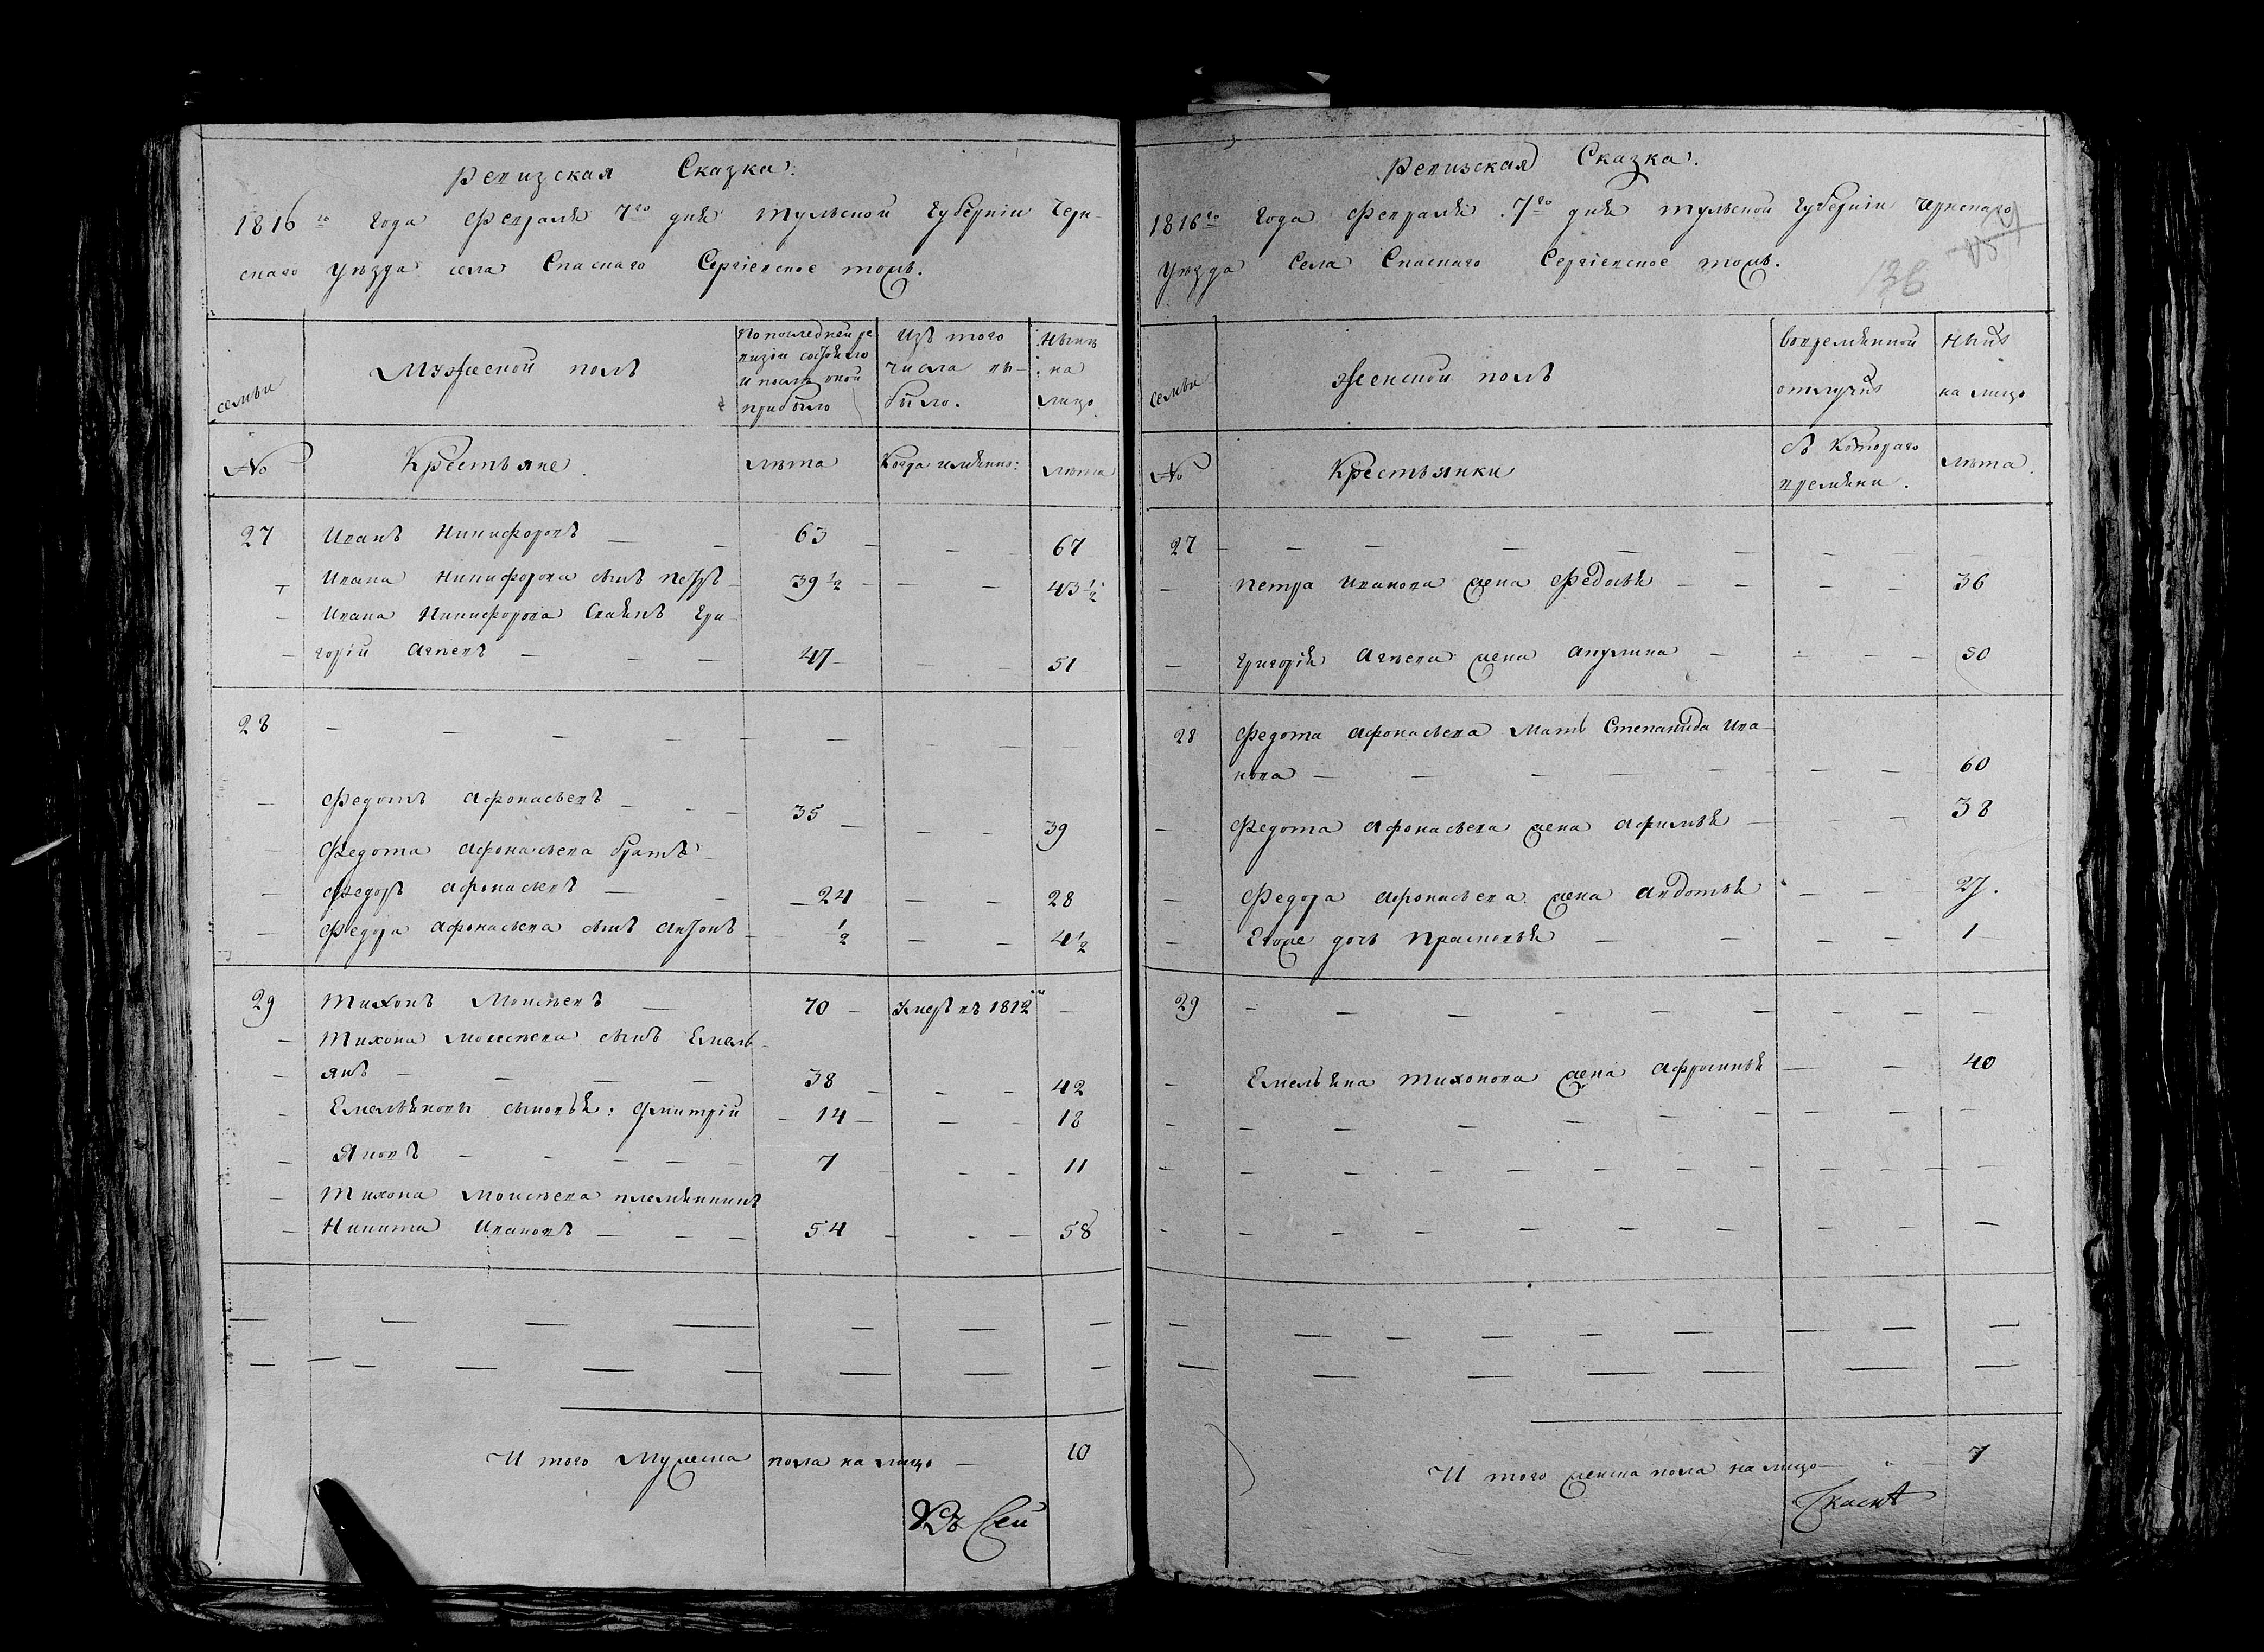 Ревизская Сказка.
1816го Года Февраля 7го дня Тульской Губернiи Черн-
скаго уезда села Спаскаго Сергiевское тожъ.
семьи
Мужеской полъ
По последней ре
визiи состояло
и после оной
прибыло
Изъ того
числа вы-
было.
Ныне
на
лицо
№
Крестьяне.
лета
Когда имянно:
лета
27 Иванъ Никифоровъ 63 67
Ивана Никифорова сынъ Петръ 39 1/2 43 1/2
Ивана Никифорова Гри
горiй Агеевъ 47 51
28
Федотъ Афонасьевъ 35 39
Федота Афонасьева братъ
Федоръ Афонасьевъ 24 28
Федора Афонасьева сынъ Антонъ 1/2 4 1/2
29 Тихонъ Моисеевъ 70 Умеръ въ 1812
Тихона Моисеева сынъ Емель
янъ 38 42
Емельяновы сыновья: Дмитрiй 14 18
Яковъ 7 11
Тихона Моисеева племянникъ
Никита Ивановъ 54 58
И того Мужеска пола на лицо 10
Ревизская Сказка.
1816го Года Февраля 7го дня Тульской Губернiи Чернскаго
уезда Села Спаскаго Сергiевское тожъ.
136
семьи
Женской полъ
Вовремянной
отлучке
Ныне
на лицо
№
Крестьянки
Съ Котораго
времяни.
лета.
27
Петра Иванова жена Федосья 36
Григорiя Агеева жена Акулина 50
28 Федота Афонасьева Мать Степанида Ива
нова 60
Федота Афонасьева жена Афимья 38
Федора Афонасьева жена Авдотья 27.
Егоже дочь Прасковья 1
29
Емельяна Тихонова жена Афросинья 40
И того женска пола на лицо 7